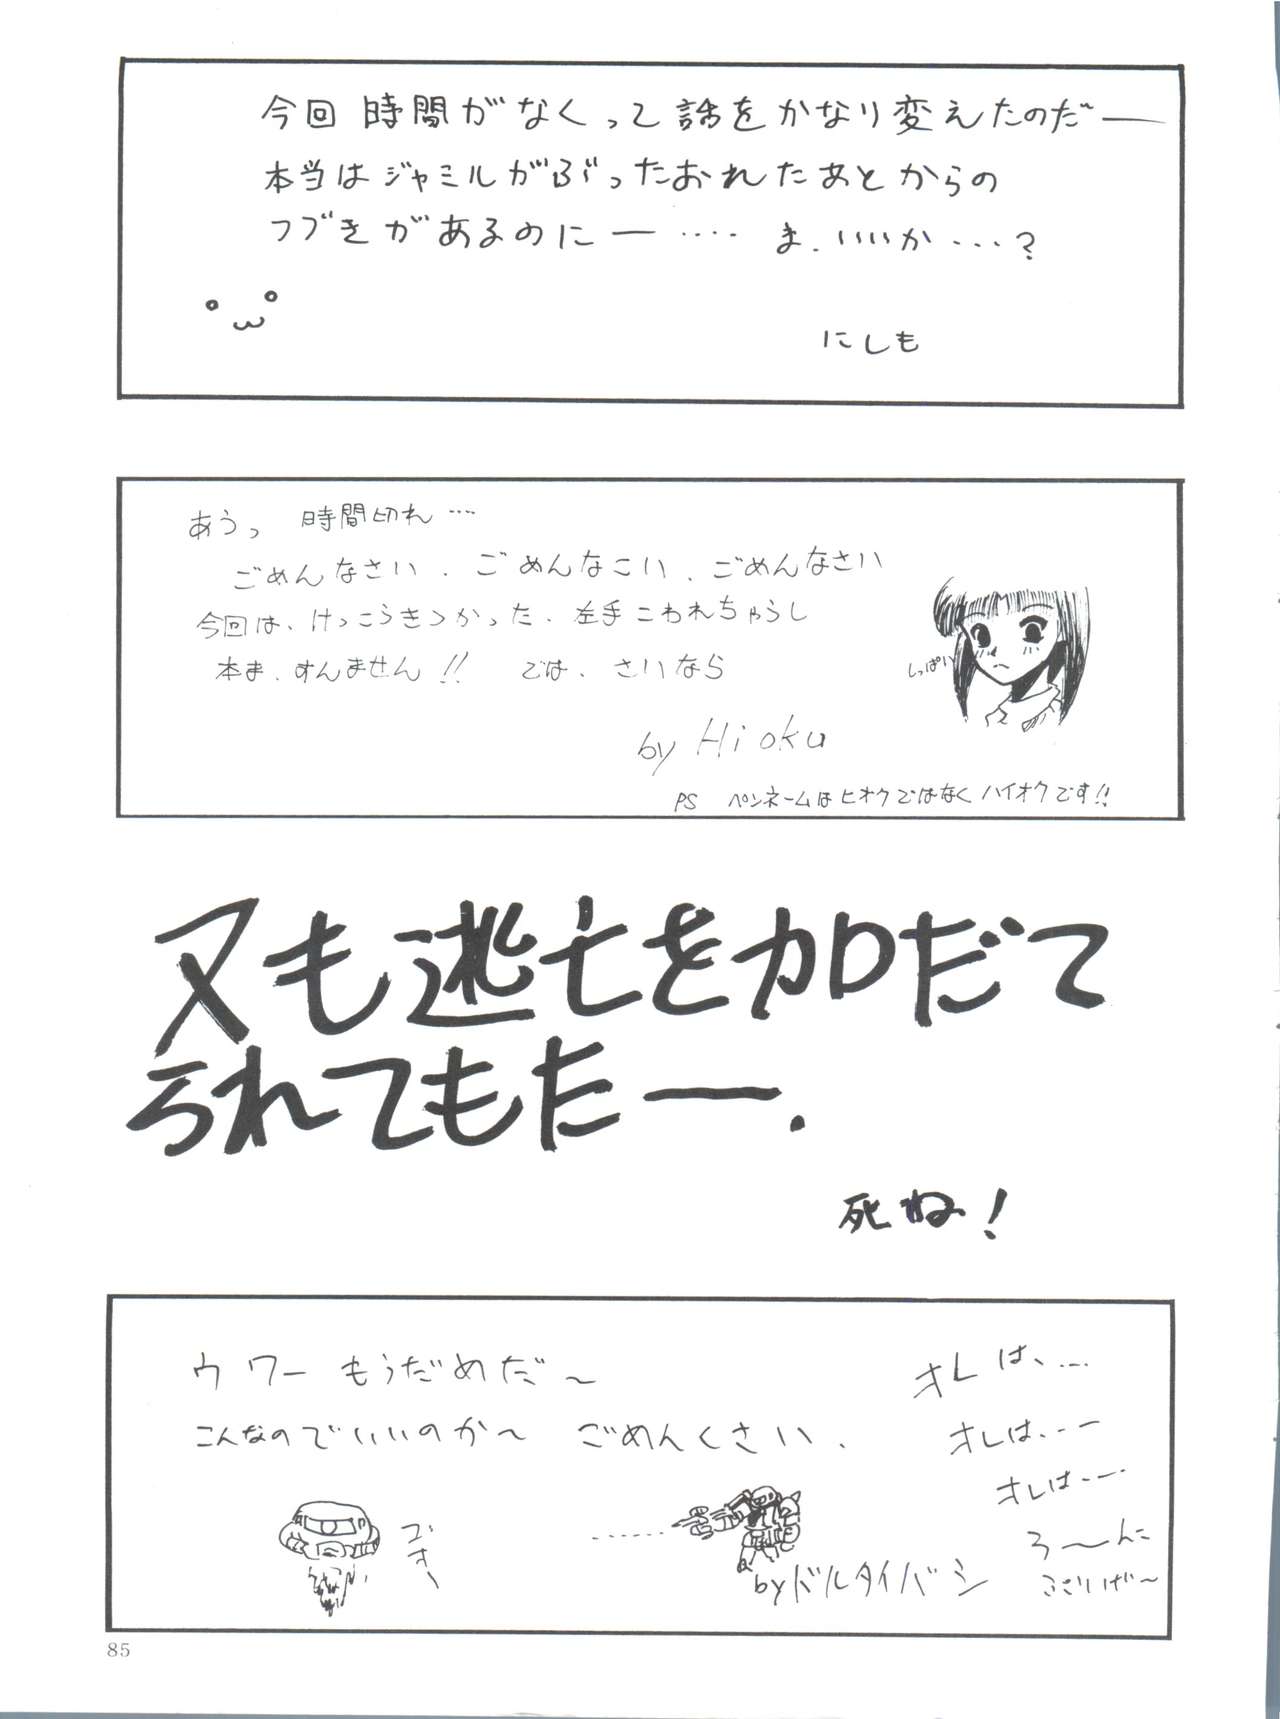 今回 時間がなくって話をかなり変えたのだー
本当はジャミルがぶったおれたあとからの
つづきがあるのにー‥‥ ま、いいか…?
にしも
あうっ 時間切れ…
ごめんなさい、ごめんなこい、ごめんなさい
今回は、けっこうきつかった、左手こわれちゃうし
本ま、すんません!! では、さいなら
しっぱい
by Hioku
PS ペンネームはヒオクではなくハイオクです!!
又も逃亡を加口だて
られてもたー.
死ね!
ウワー もうだめだ〜
こんなのでいいのか〜 ごめんくさい.
オレは、…
オレは、…
オレは…
ろ〜んに
ございげ〜
ゴオ〜
by ドルタイバシ
85